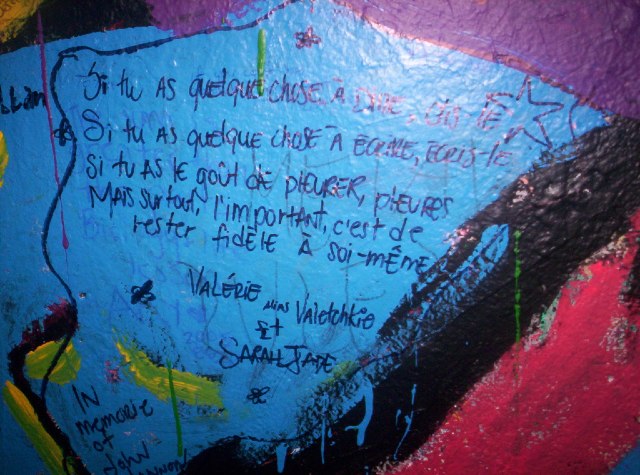 Si tu as quelque chose à dire, dis-le
Si tu as quelque chose à écrire, écris-le
Si tu as le goût de pleurer, pleures
Mais surtout, l'important, c'est de
rester fidèle à soi-même
Valérie alias Valetchkie
et
Sarah Jade
IN
memorie
of
John